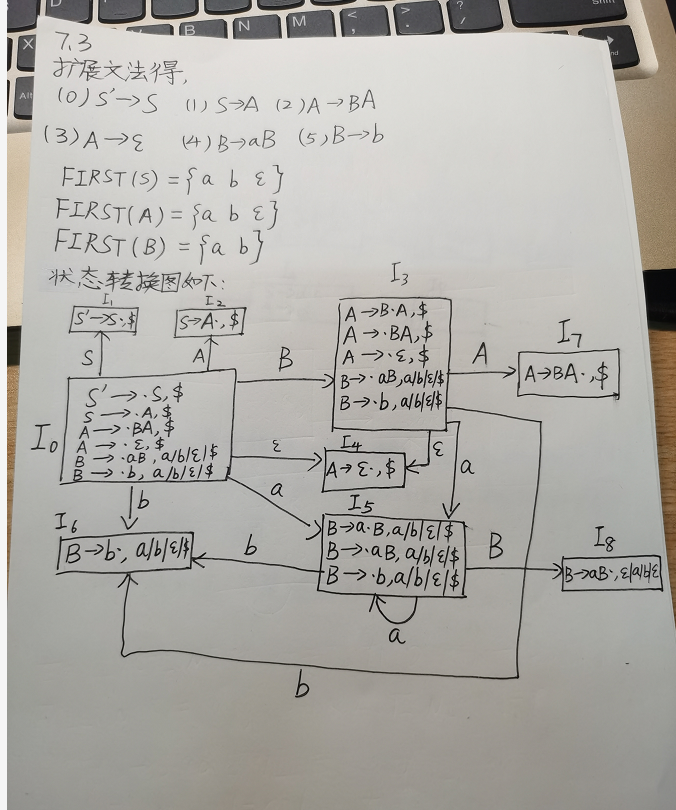 7.3
扩展文法得,
(0) S'→S (1) S→A (2) A→BA
(3) A→ε (4) B→aB (5) B→b
FIRST(S) = {a b ε}
FIRST(A) = {a b ε}
FIRST(B) = {a b}
状态转换图如下:
I1
S'→S·,$
I2
S→A·,$
I3
A→B·A,$
A→·BA,$
A→·ε,$
B→·aB,a/b/ε/$
B→·b,a/b/ε/$
S
A
B
A
I7
A→BA·,$
I0
S'→·S,$
S→·A,$
A→·BA,$
A→·ε,$
B→·aB,a/b/ε/$
B→·b,a/b/ε/$
ε
I4
A→ε·,$
ε
a
a
b
I5
B→a·B,a/b/ε/$
B→·aB,a/b/ε/$
B→·b,a/b/ε/$
I6
B→b·,a/b/ε/$
b
B
I8
B→aB·,a/b/ε/$
a
b
N
M
<
,
>
.
?
/
X
Alt
Shift